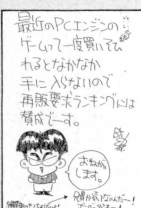 最近のPCエンジンの
ゲームって一度買いそび
れるとなかなか
手に入らないので
再販要求ランキングには
賛成です。
おねがい
します。